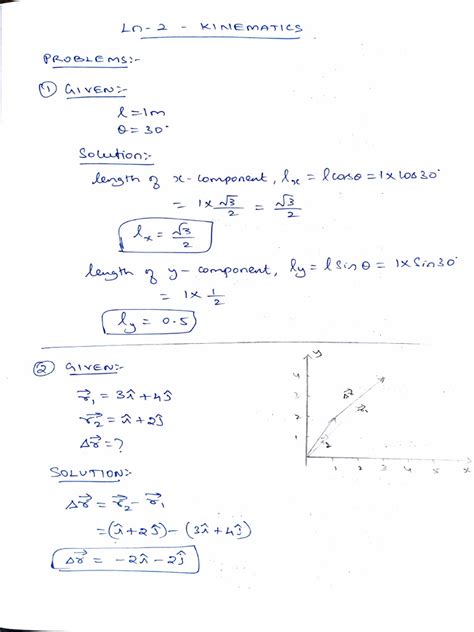 Ln-2 - KINEMATICS
PROBLEMS:-
① GIVEN:-
l = 1m
θ = 30°
Solution:-
length of x-component, lx = l cosθ = 1 x cos30°
= 1 x √3/2 = √3/2
lx = √3/2
length of y-component, ly = l Sin θ = 1 x Sin 30°
= 1 x 1/2
ly = 0.5
② GIVEN:-
r⃗₁ = 3î + 4ĵ
r⃗₂ = î + 2ĵ
Δr⃗ = ?
y
4
3
2
1
Δr⃗
r⃗₁
r⃗₂
1 2 3 4 5 x
SOLUTION:-
Δr⃗ = r⃗₂ - r⃗₁
= (î + 2ĵ) - (3î + 4ĵ)
Δr⃗ = -2î - 2ĵ